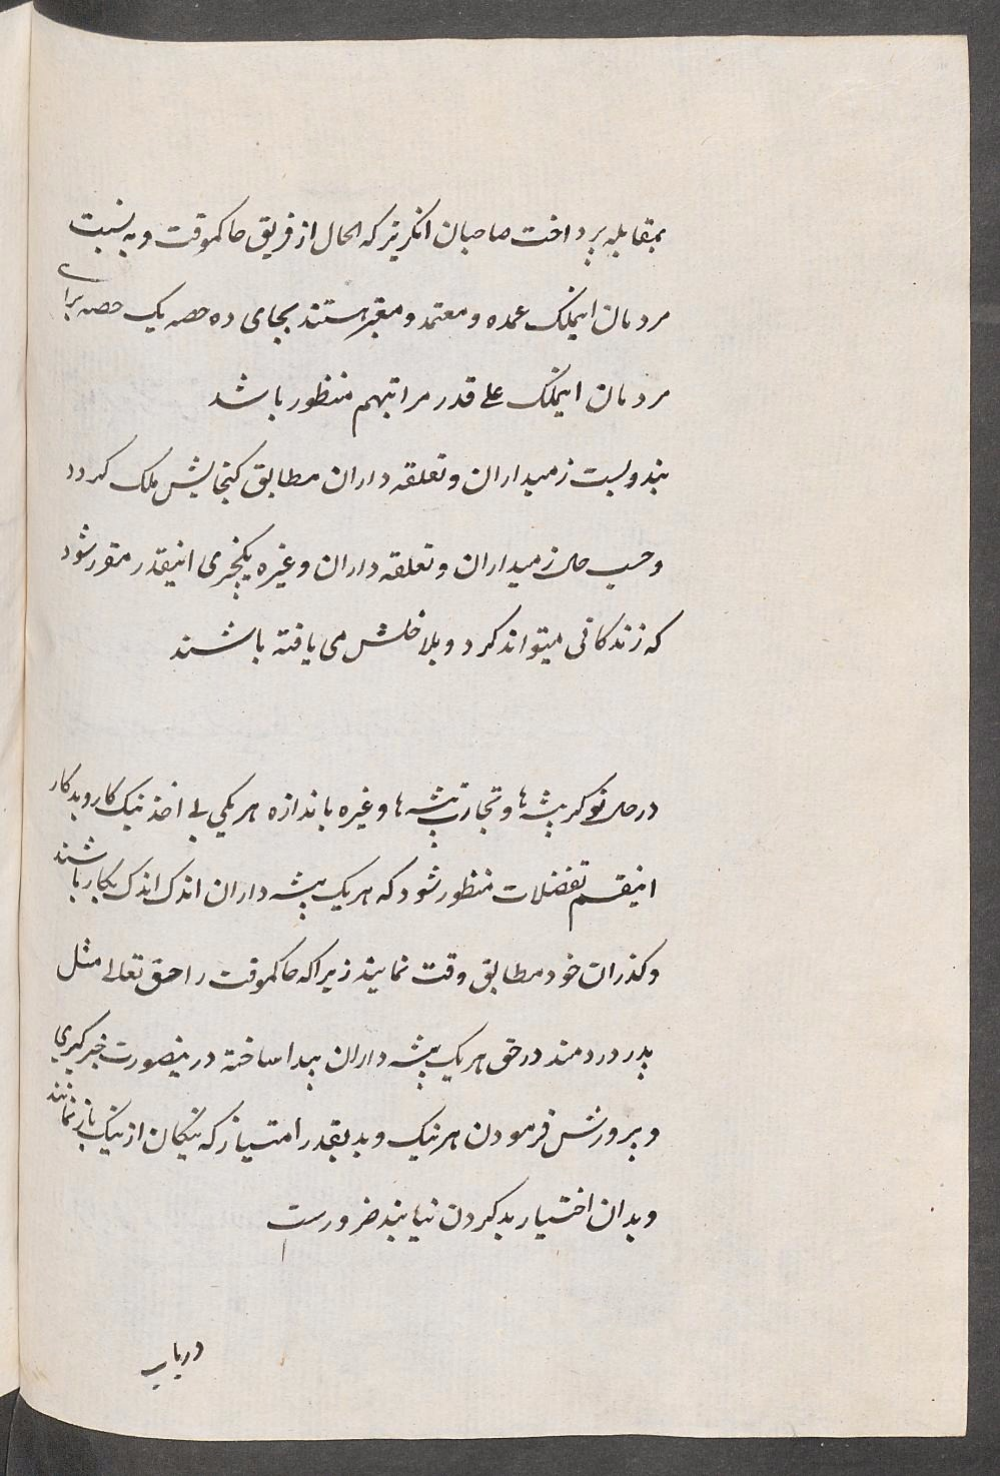 بمقابله پرداخت صاحبان انکریز که الحال از فریق حاکموقت و به نسبت
مردمان ایملک عمده و معتمد و معتبر هستند بجای ده حصه یک حصه برای
مردمان ایملک علی قدر مراتبهم منظور باشد
بندوبست زمیداران و تعلقه داران مطابق کنجایش ملک کردد
و حسب حال زمیداران و تعلقه داران و غیره یکنچری اینقدر مقرر شود
که زندکانی میتواند کرد و بلا خلش می یافته باشند
در حال نوکر پیشه ها و تجارت پیشه ها و غیره باندازه هر یکی بی اخذ نیک کار و بدکار
اینقسم تفضلات منظور شود که هر یک پیشه داران اندک اندک بکار باشند
و کذران خود مطابق وقت نمایند زیرا که حاکموقت را حق تعالی مثل
پدر دردمند در حق هر یک پیشه داران پیدا ساخته درینصورت خبرکیری
و پرورش فرمودن هر نیک و بد بقدر امتیاز که نیکان از نیکی باز نمانند
و بدان اختیار بد کردن نیابند ضرورست
درباب